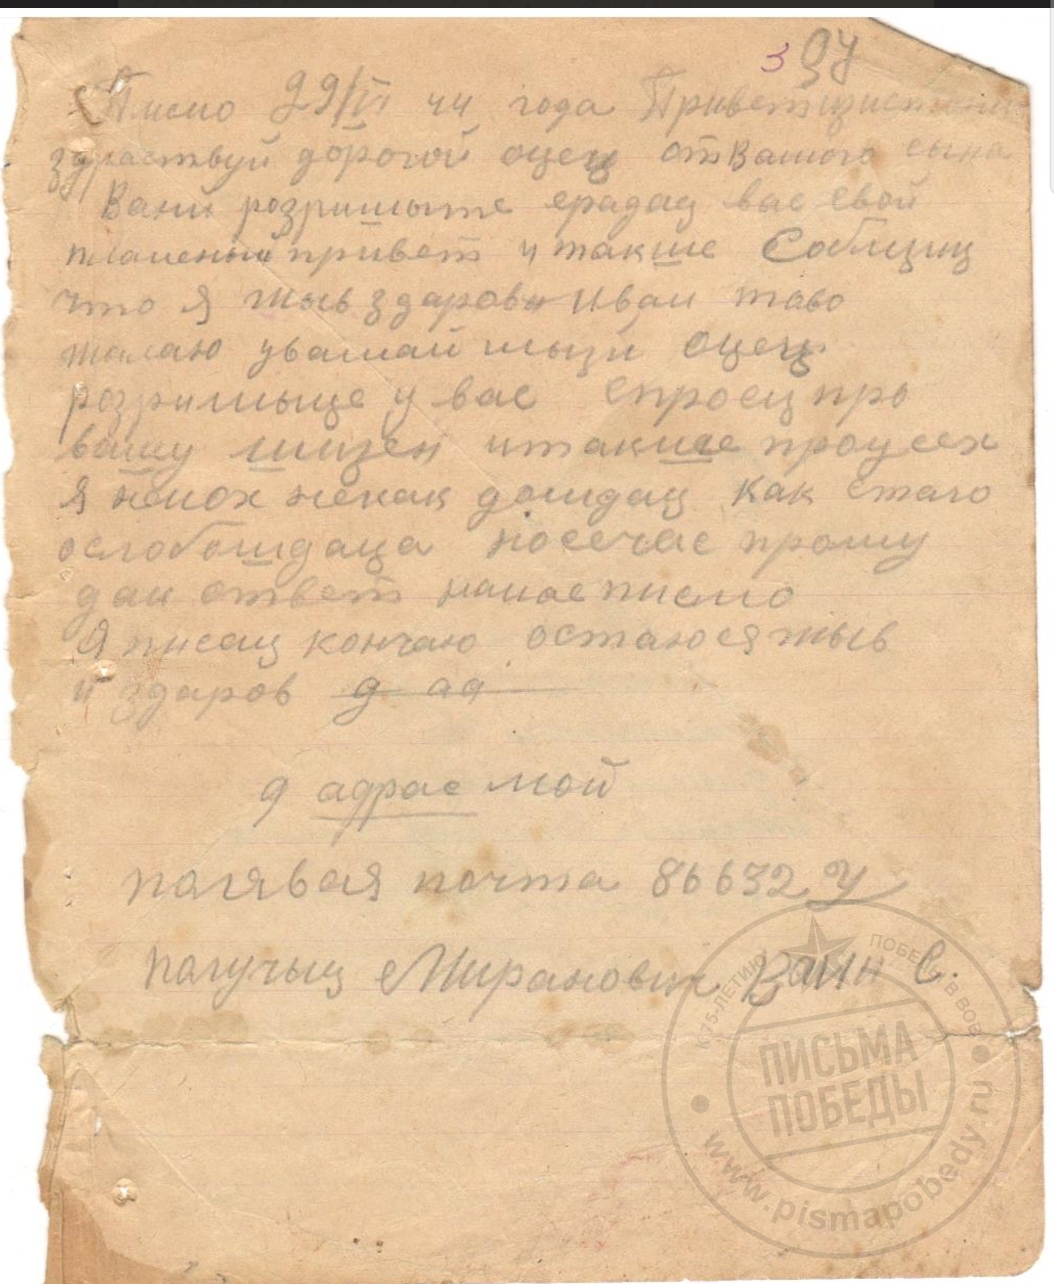 3 94
Писмо 29/VI 44 года Привет
здраствуй дорогой оцец от Вашого сына
Вани розришыте ерадац вас свой
пламеный привет и такше Собщиц
что я жыв здаров и Вам таво
жалаю уважаймыйи оцец
розришыце у вас спросиц про
вашу шизен и такше про усех
Я немох некак дошдац как стаго
ослобошдаца посечас прошу
дай ответ на мае писмо
Я писац кончаю остаюся жыв
и здаров д ад
д адрас мой
палявая почта 86632 У
палучыц Миранович Вани С.
К 75-ЛЕТИЮ ПОБЕДЫ В ВОВ
ПИСЬМА
ПОБЕДЫ
www.pismapobedy.ru